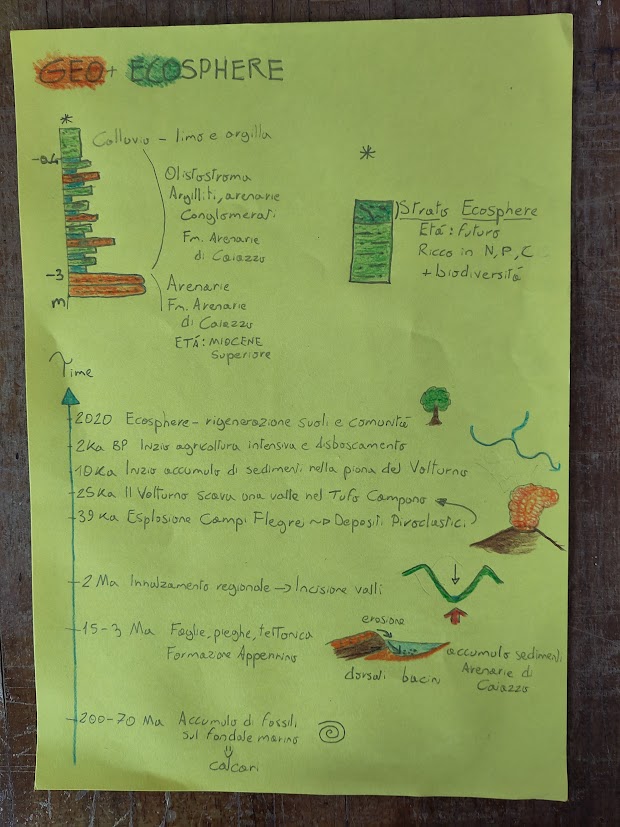 GEO+ ECOSPHERE
*
Colluvio - limo e argilla
-0.4
Olistostroma
Argilliti, arenarie
Conglomerati
Fm. Arenarie
di Caiazzo
-3
m
Arenarie
Fm. Arenarie
di Caiazzo
ETÁ: MIOCENE
Superiore
*
Strato Ecosphere
Etá: futuro
Ricco in N, P, C
+ biodiversitá
Time
2020 Ecosphere - rigenerazione suoli e comunitá
2Ka BP Inzio agricoltura intensiva e disboscamento
10Ka Inzio accumulo di sedimenti nella piana del Volturno
25Ka Il Volturno scava una valle nel Tufo Campano
39Ka Esplosione Campi Flegrei ~> Depositi Piroclastici
2 Ma Innalzamento regionale → Incisione valli
15-3 Ma Faglie, pieghe, tettonica
Formazione Appennino
erosione
dorsali bacini
accumulo sedimenti
Arenarie di
Caiazzo
200-70 Ma Accumulo di fossili
sul fondale marino
calcari